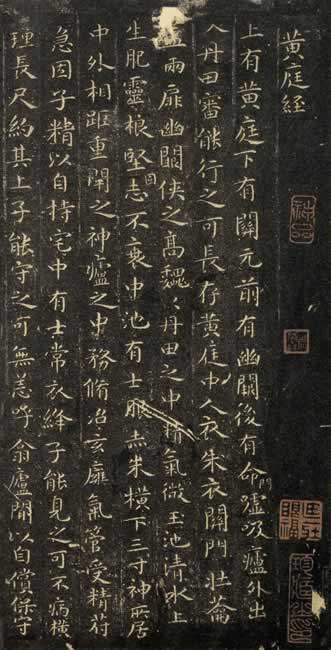 黃庭經
上有黃庭下有關元前有幽闕後有命門噓吸廬外出
入丹田審能行之可長存黃庭中人衣朱衣關門壯蘥
蓋兩扉幽闕俠之高魏〻丹田之中精氣微玉池清水上
生肥靈根堅固志不衰中池有士服赤朱橫下三寸神所居
中外相距重閉之神廬之中務脩治玄廱氣管受精苻
急固子精以自持宅中有士常衣絳子能見之可不病橫
理長尺約其上子能守之可無恙呼翕廬間以自償保守